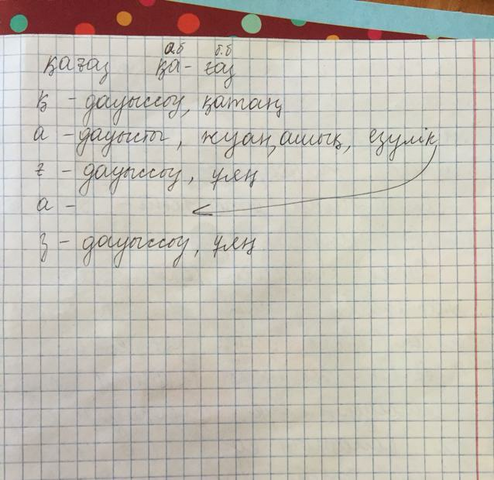 қағаз қа- ғаз
аб б.б
қ - дауыссыз, қатаң
а - дауысты, жуан, ашық, езулік
ғ - дауыссыз, ұяң
а -
з - дауыссыз, ұяң